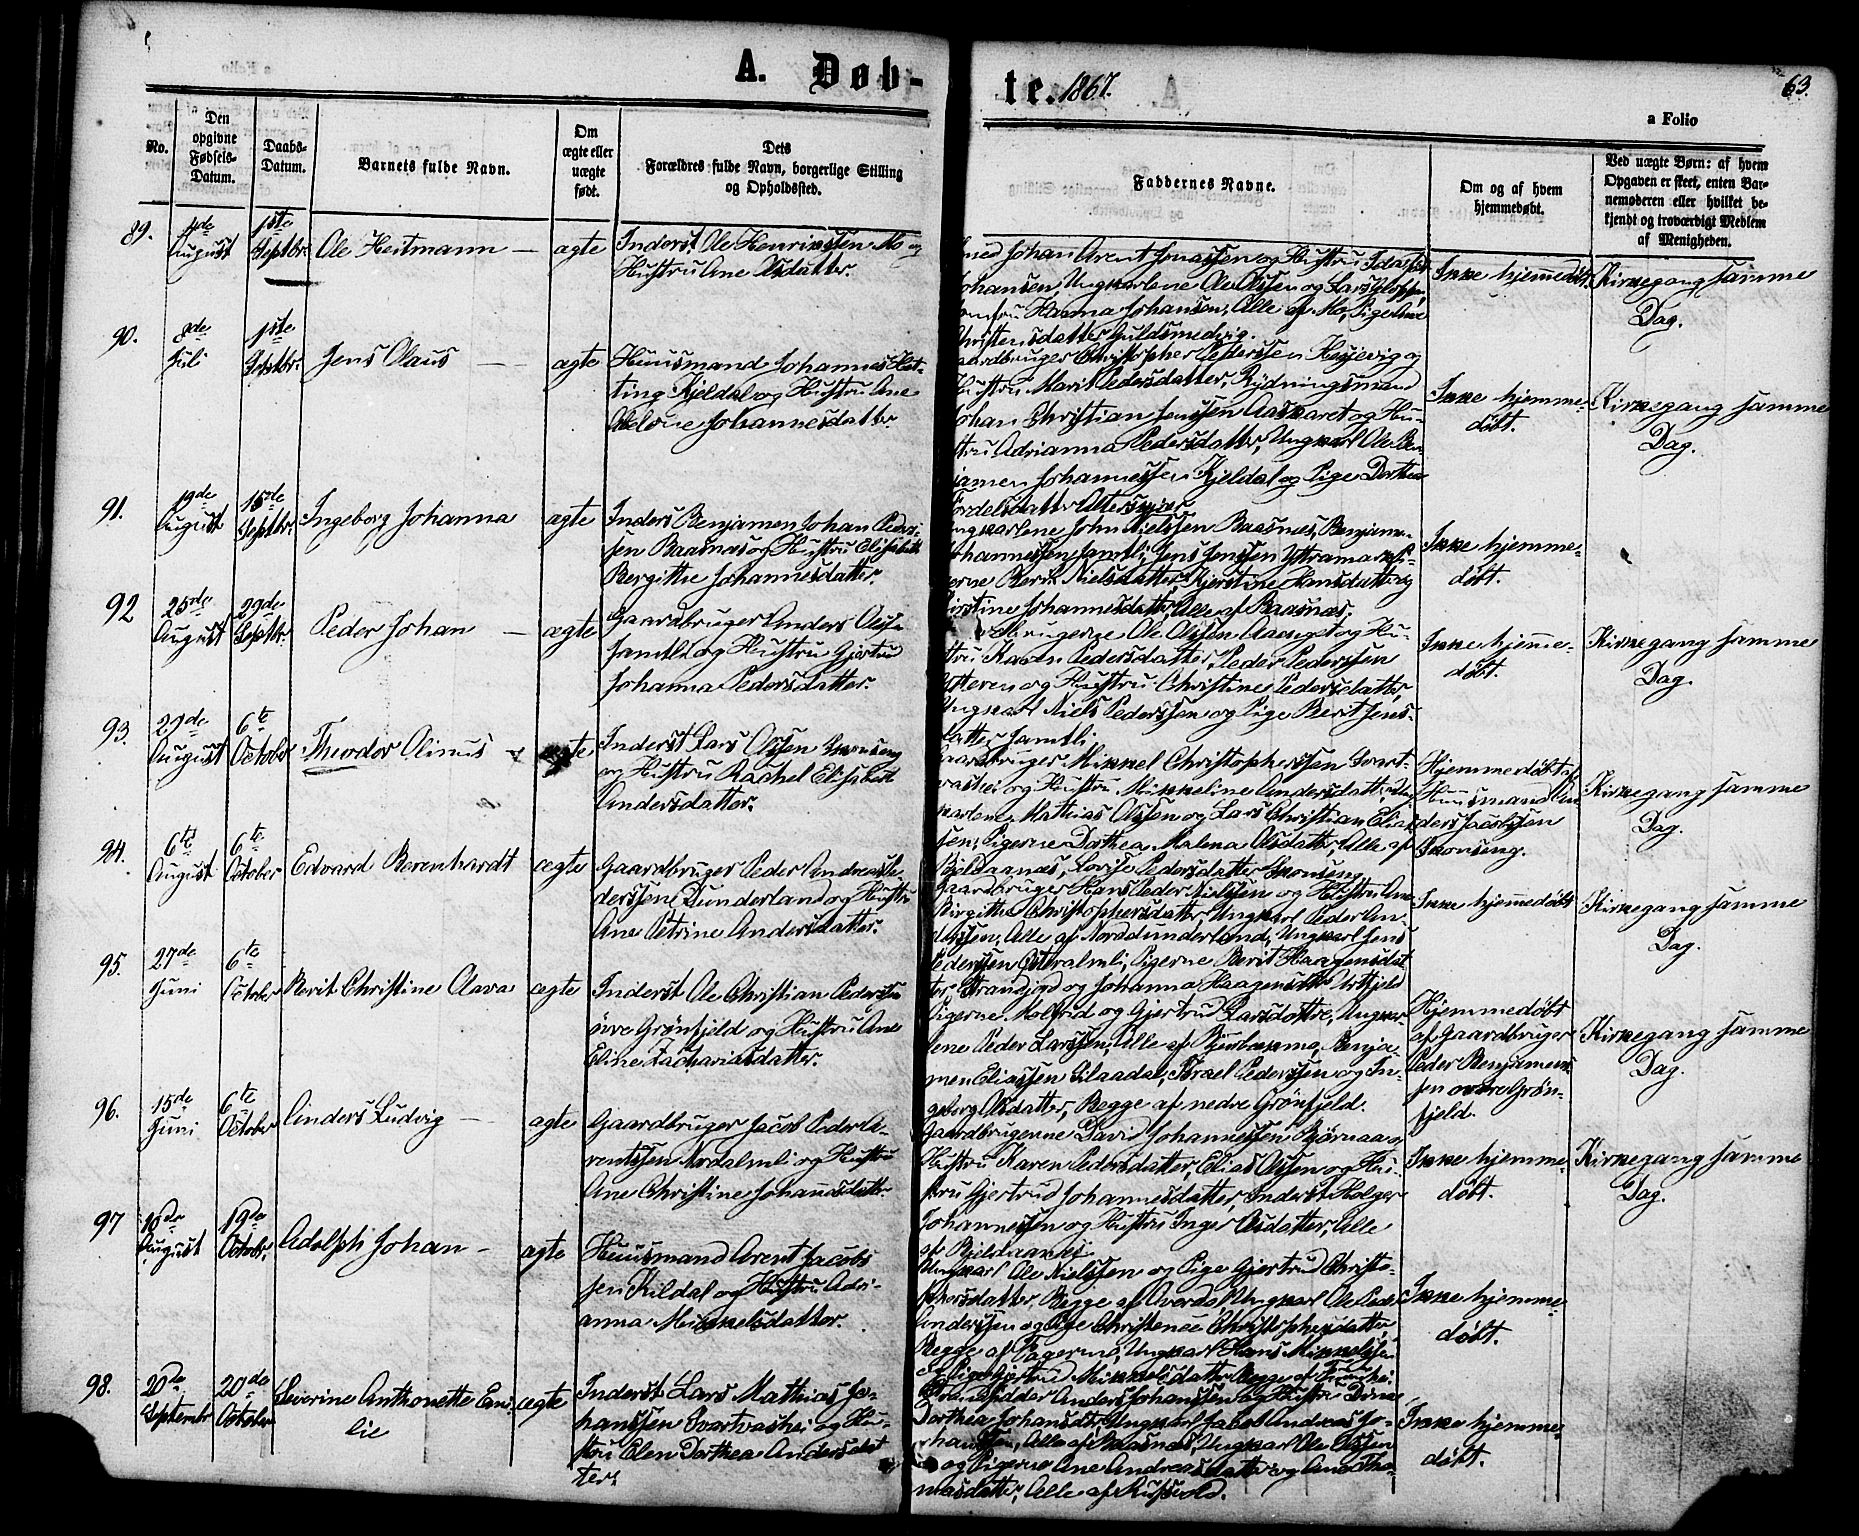 A. Døb-
te. 1867.
63.
a Folio
No.
Den
opgivne
Fødsels-
Datum.
Daabs-
Datum.
Barnets fulde Navn.
Om
ægte eller
uægte
født.
Dets
Forældres fulde Navn, borgerlige Stilling
og Opholdssted.
Faddernes Navne.
Om og af hvem
hjemmedøbt.
Ved uægte Børn: af hvem
Opgaven er skeet, enten Bar-
nemoderen eller hvilket be-
kjendt og troværdigt Medlem
af Menigheden.
89.
4de
August
1ste
Septbr.
Ole Heitmann
ægte
Inderst Ole Henrikssen Mo og
Hustru Ane Olsdatter.
Johan Arent Jonassen og Hustru
Johansen, Ungkarlene Ole Olssen og Lars
Hanna Johansen, Alle af Mo, Pige Ane
Christensdatter Guldsmedvig.
Ikke hjemmedøbt.
Kirkegang samme
Dag.
90.
8de
Juli
1ste
Septbr.
Jens Olaus
ægte
Huusmand Johannes Het-
ting Kjeldal og Hustru Ane
Abelone Johannesdatter
Gaardbruger Christopher Pederssen Hesjevig og
Hustru Marit Pedersdatter, Rydningsmand
Johan Christian Jenssen Aaskaret og Hu-
stru Adrianna Pedersdatter, Ungkarl Ole Ben-
jamen Johannessen Kjeldal og Pige Dorthea
Ikke hjemme-
døbt.
Kirkegang samme
Dag.
91.
19de
August
15de
Septbr.
Ingeborg Johanna
ægte
Inderst Benjamen Johan Peder-
sen Baasnæs og Hustru Elisabeth
Bergitthe Johannesdatter.
Ungkarlene John Nielssen Baasnæs, Benjamen
Johannessen Jamtli, Jens Jenssen Yttramark, Pi-
gerne Berit Nielsdatter, Kjerstine Hansdatter og
Kirstine Johannesdatter, Alle af Baasnæs.
Ikke hjemme-
døbt.
92
25de
August
29de
Septbr.
Peder Johan
ægte
Gaardbruger Anders Olssen
Jamtli og Hustru Gjertrud
Johanna Pedersdatter.
Ole Olssen Aanget og Hu-
stru Karen Pedersdatter, Peder Pederssen
Ytteren og Hustru Christine Pedersdatter,
Ungkarl Niels Pederssen og Pige Berit Jens-
datter Jamtli.
Ikke hjemme-
døbt.
Kirkegang samme
Dag.
93.
29de
August
6te
October
Theodor Olinus
ægte
Inderst Lars Olssen Skonseng
og Hustru Rachel Elisabeth
Andersdatter.
Gaardbruger Mikkel Christopherssen Svart-
vashei og Hustru Mikkeline Andersdatter, Ung-
karlene Mathias Olssen og Lars Christian Elias-
sen, Pigerne Dorthea Malena Olsdatter, Alle af
Bjeldaanæs, Lovise Pedersdatter Skonseng.
Hjemmedøbt af
Huusmand An-
ders Jacobssen
Skonseng.
Kirkegang samme
Dag.
94.
6te
August
6te
October
Edvard Berenhardt
ægte
Gaardbruger Peder Andreas Pe-
derssen Dunderland og Hustru
Ane Petrine Andersdatter.
Gaardbruger Hans Peder Nielssen og Hustru Ane
Birgitthe Christophersdatter, Ungkarl Peder An-
derssen, Alle af Norddunderland, Ungkarl Jens
Pederssen Østeralmli, Pigerne Berit Haagensdat-
ter Strandjord og Johanna Haagensdatter
Ikke hjemmedøbt
Kirkegang samme
Dag.
95.
27de
Juni
6te
October
Berit Christine Olava
ægte
Inderst Ole Christian Pederssen
øvre Grønfjeld og Hustru Ane
Eline Zachariasdatter.
Pigerne Molfrid og Gjertrud Larsdøttre, Ungkar-
lene Peder Larssen, Alle af Bjerkemo, Benja-
men Eliassen Silaadal, Israel Pederssen og In-
geborg Olsdatter, Begge af nedre Grønfjeld.
Hjemmedøbt
af Gaardbruger
Peder Benjamens-
sen øvre Grøn-
fjeld.
Kirkegang samme
Dag.
96.
15de
Juni
6te
October
Anders Ludvig
ægte
Gaardbruger Jacob Peder A-
rentssen Nordalmli og Hustru
Ane Christine Johannesdatter.
Gaardbrugerne David Johannessen Bjørnaa og
Hustru Karen Pedersdatter, Elias Olssen og Hu-
stru Gjertrud Johannesdatter, Inderst Holger
Johannessen og Hustru Inger Olsdatter, Alle
af Bjeldaanæs.
Ikke hjemme-
døbt.
Kirkegang samme
Dag.
97
18de
August
19de
Octobr.
Adolph Johan
ægte
Huusmand Arent Jacobs
sen Kildal og Hustru Adri-
anna Mikkelsdatter.
Ungkarl Ole Nielssen og Pige Gjertrud Christo-
phersdatter, Begge af Averdal, Ungkarl Ole Peder
Anderssen og Pige Christence Christophersdatter,
Begge af Fagermo, Ungkarl Hans Mikkelssen
og Pige Gjertrud Mikkelsdatter, Begge af
Ikke hjemme-
døbt.
98.
20de
Septembr
20de
October
Severine Anthonette Emi-
lie
ægte
Inderst Lars Mathias Jo-
hanssen Svartvashei og Hu-
stru Elen Dorthea Andersdat
ter.
Anders Johanssen og Hustru
Dorthea Johansdtr, Ungkarl Jakob Andreas Jo-
hanssen, Alle af Baasnæs, Ungkarl Ole Olssen
og Pigerne Ane Andreasdatter og Ane Tho-
masdatter, Alle af Rusvold.
Ikke hjemme-
døbt.